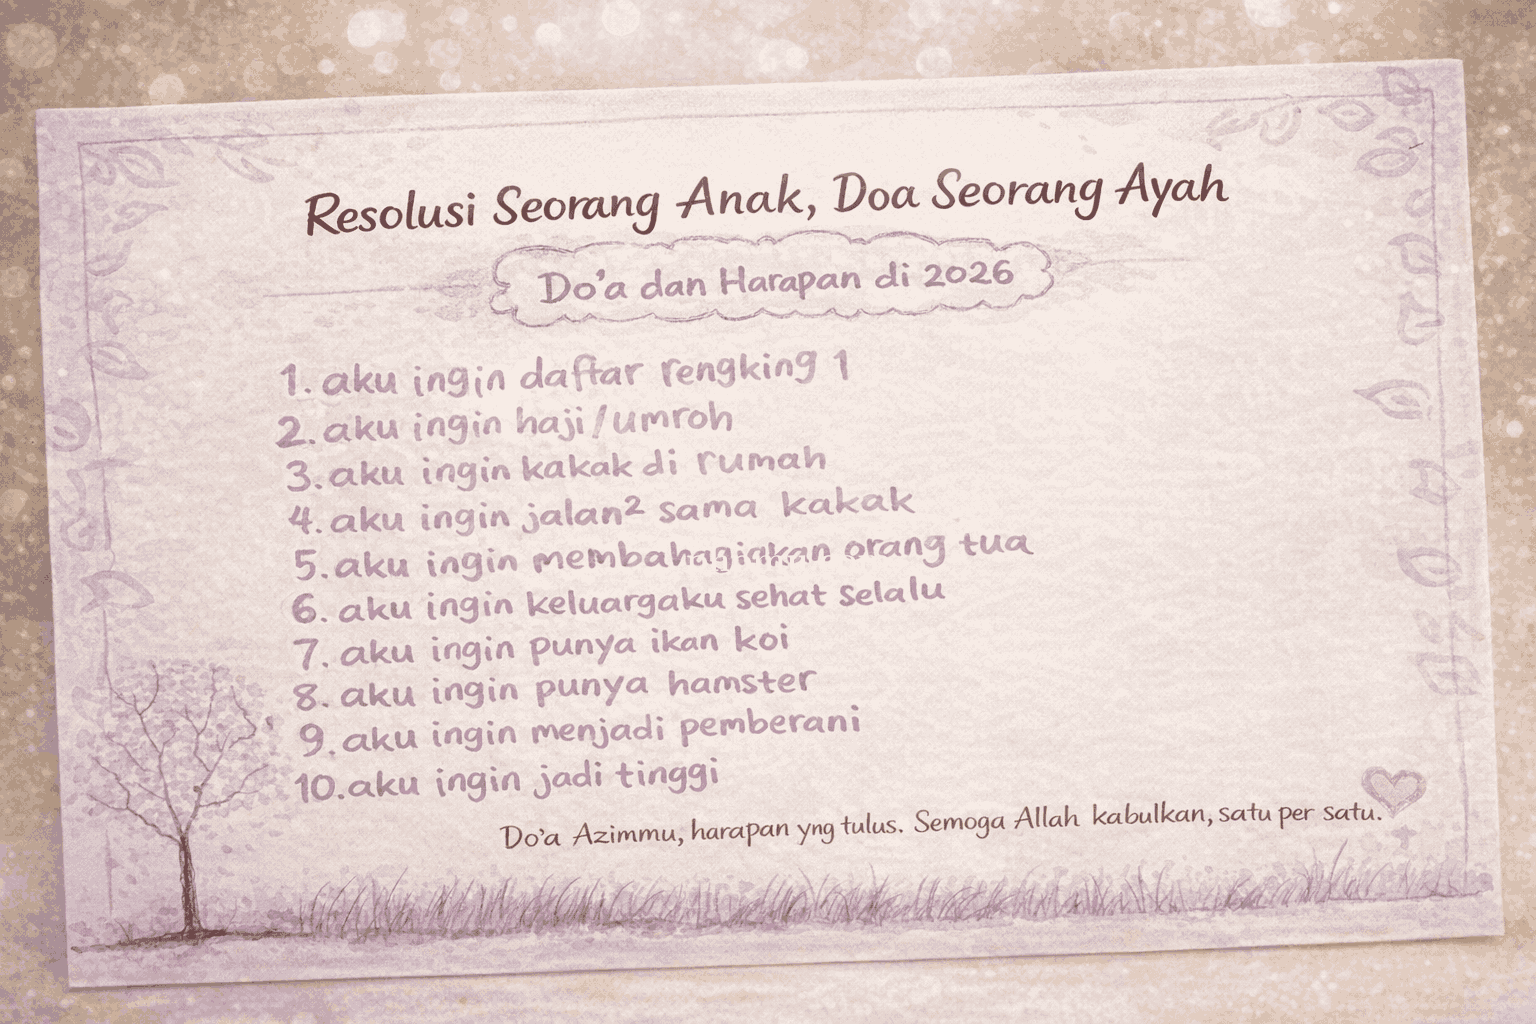 Resolusi Seorang Anak, Doa Seorang Ayah
Do'a dan Harapan di 2026
1. aku ingin daftar rengking 1
2. aku ingin haji/umroh
3. aku ingin kakak di rumah
4. aku ingin jalan² sama kakak
5. aku ingin membahagiakan orang tua
6. aku ingin keluargaku sehat selalu
7. aku ingin punya ikan koi
8. aku ingin punya hamster
9. aku ingin menjadi pemberani
10. aku ingin jadi tinggi
Do'a Azimmu, harapan yng tulus. Semoga Allah kabulkan, satu per satu.